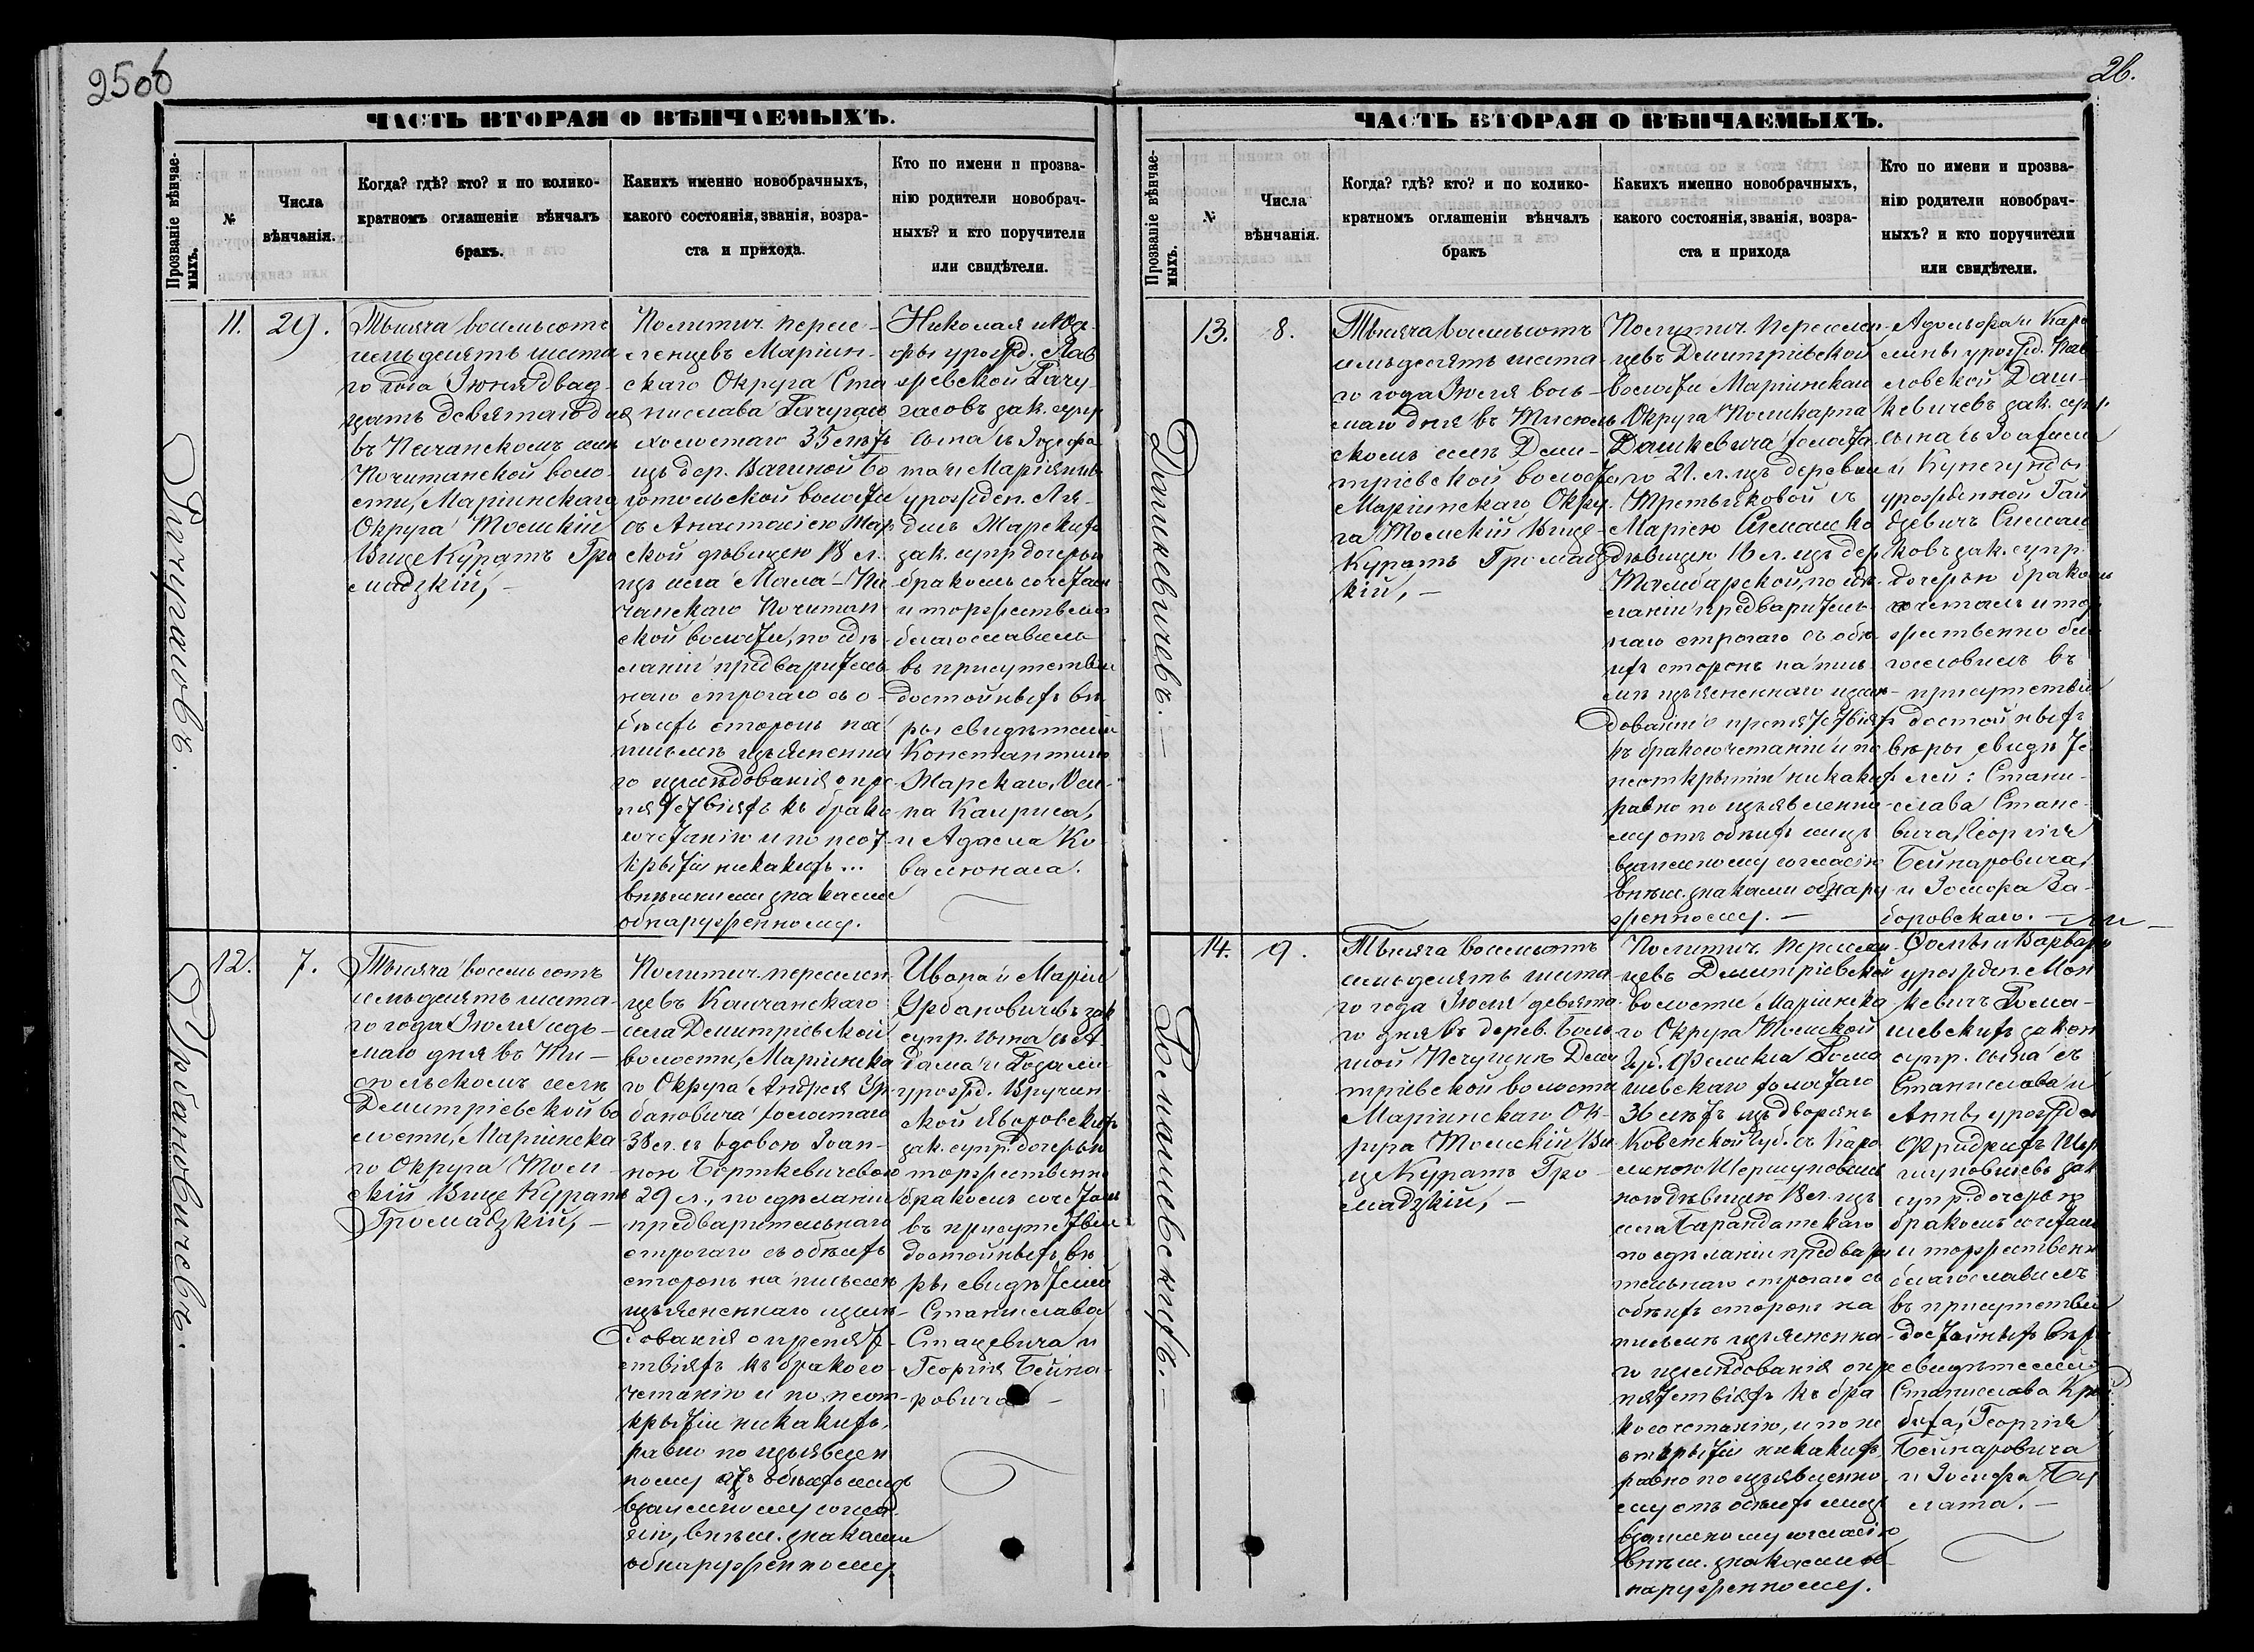 2506
26.
ЧАСТЬ ВТОРАЯ О ВѢНЧАЕМЫХЪ.
Прозваніе вѣнчае-
мыхъ.
№
Числа
вѣнчанія.
Когда? гдѣ? кто? и по колико-
кратномъ оглашеніи вѣнчалъ
бракъ.
Какихъ именно новобрачныхъ,
какого состоянія, званія, возра-
ста и прихода.
Кто по имени и прозва-
нію родители новобрач-
ныхъ? и кто поручители
или свидѣтели.
11.
29.
Тысяча восемьсотъ
семьдесятъ шеста
го года Іюня двад-
цать девятаго дня
въ Песчанскомъ селѣ
Почитанской воло-
сти, Маріинскаго
Округа Томскій
Вице Куратъ Гро
мадзкій, –
Политич. пересе-
ленцевъ Маріин-
скаго Округа Ста
нислава
холостаго 35 лѣтъ
изъ дер. Вагиной Бо
готольской волости
съ Анастасіею Жар
ской дѣвицею 18 л.
изъ села Мало-Пи
чанскаго Почитан
ской волости, по сдѣ-
ланіи предваритель
наго строгаго съ о-
беихъ сторонъ на
письмѣ изъясненна
го изслѣдованія о пре-
пятствіяхъ къ брако
сочетанію и по неот-
крытіи никакихъ...
внѣшними знаками
обнаруженному.
Николая и
урожд.
зак. супр
сына съ
та и Маріянны
урожден.
Жарскихъ
зак. супр дочерью
бракомъ сочеталъ
и торжественно
благословилъ
въ присутствіи
достойныхъ вѣ-
ры свидѣтелей
Константина
Жарскаго, Оси-
па
и Адама Ко-
валюнаса.
12.
Урбановичевъ.
7.
Тысяча восемьсотъ
семьдесятъ шеста-
го года Іюля седь-
маго дня въ Ти-
сюльскомъ селѣ
Дмитріевской во
лости, Маріинска
го Округа Том-
скій Вице Куратъ
Громадзкій, –
Политич. переселен
цевъ Каичанскаго
села Дмитріевской
волости, Маріинска
го Округа Андрея Ур-
бановича холостаго
38 л. съ вдовою Іоан-
ною Борткевичевою
29 л., по сдѣланіи
предварительнаго
строгаго съ обѣихъ
сторонъ на письмѣ
изъясненнаго изслѣ-
дованія о препят-
ствіяхъ къ бракосо-
четанію и по неот-
крытіи никакихъ,
равно по изъявлен
ному отъ обѣихъ лицъ
взаимному согла-
сію, внѣш. знаками
обнаруженному.
Ивана и Маріи
Урбановичевъ зак
супр. сына съ А
дама и Розаліи
урожд.
ской Яворовскихъ
зак. супр. дочерью
торжественно
бракомъ сочеталъ
въ присутствіи
достойныхъ вѣ
ры свидѣтелей
Станислава
Стацевича и
Георгія Бейна-
ровича –
ЧАСТЬ ВТОРАЯ О ВѢНЧАЕМЫХЪ.
Прозваніе вѣнчае-
мыхъ.
№
Числа
вѣнчанія.
Когда? гдѣ? кто? и по колико-
кратномъ оглашеніи вѣнчалъ
бракъ
Какихъ именно новобрачныхъ,
какого состоянія, званія, возра-
ста и прихода
Кто по имени и прозва-
нію родители новобрач-
ныхъ? и кто поручители
или свидѣтели.
13.
Дашкевичевъ. –
8.
Тысяча восемьсотъ
семьдесятъ шеста-
го года Іюля вось-
маго дня въ Тисюль
скомъ селѣ Дми-
тріевской волости
Маріинскаго Окру-
га Томскій Вице-
Куратъ Громадз
кій, –
Политич. Переселен-
цевъ Дмитріевской
волости Маріинскаго
Округа Поликарпа
Дашкевича холоста-
го 21. л. изъ деревни
Третьяковой съ
Маріею Симашко
дѣвицею 16 л. изъ дер
Тамбарской, по сдѣ-
ланіи предваритель-
наго строгаго съ обѣ-
ихъ сторонъ на пись
мѣ изъясненнаго изслѣ-
дованія о препятствіяхъ
къ бракосочетанію и по
неоткрытіи никакихъ
равно по изъявленно-
му отъ обѣихъ лицъ
взаимному согласію
внѣш. знаками обнару-
женному. –
Адольфа и Каро
лины урожд. Пав-
ловской Даш-
кевичевъ зак. супр.
сына съ
и Кунегунды
урожденной Гай
дзевичъ Симаш
ковъ зак. супр.
дочерью бракомъ
сочеталъ и тор
жественно бла-
гословилъ въ
присутствіи
достойныхъ
вѣры свидѣте
лей: Стани-
слава Стаце-
вича, Георгія
Бейнаровича,
и Іосифа За-
боровскаго. –
14.
Ромашевскихъ. –
9.
Тысяча восемьсотъ
семьдесятъ шеста
го года Іюля девята
го дня въ дерев. Боль
шой Печуркѣ Дми
тріевской волости
Маріинскаго Ок-
руга Томскій Ви
це Куратъ Гро-
мадзкій, –
Политич. Переселен-
цевъ Дмитріевской
волости Маріинска
го Округа Томской
Губ. Феликса Рома
шевскаго холостаго
36 лѣтъ изъ дворянъ
Ковенской Губ. съ Каро
линою Шершуновыш
ною дѣвицею 18 л. изъ
села Барандатскаго
по сдѣланіи предвари
тельнаго строгаго съ
обѣихъ сторонъ на
письмѣ изъясненна-
го изслѣдованія о пре
пятствіяхъ къ бра
косочетанію, и по не
открытіи никакихъ
равно по изъявленно
му отъ обѣихъ лицъ
взаимному согласію
внѣш. знаками об-
наруженному.
Фомы и Варвары
урожден. Мон
кевичъ Рома-
шевскихъ закон
супр. сына съ
Станислава и
Анны урожден
зак
супр. дочерью
бракомъ сочеталъ
и торжественно
благословилъ
въ присутствіи
достойныхъ вѣры
свидѣтелей
Станислава
Георгія
Бейнаровича
и Іосифа